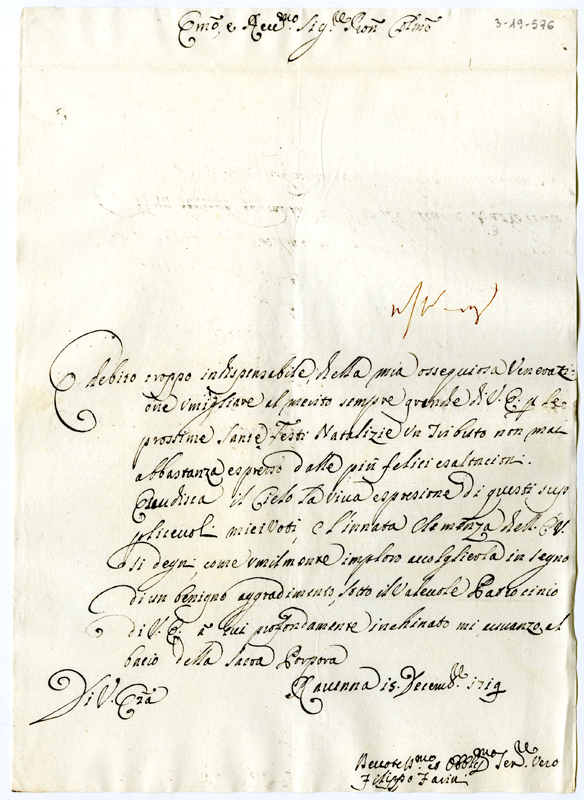 3-19-576
Em̃o, e Reu.mo Sig.re Pron Colmo
È debito troppo indispensabile, della mia ossequiosa Venerati-
one vmigliare al merito sempre grande di V. E. p le
prossime Sante Festi Natalizie vn Tributo non mai
abbastanza espresso dalle più felici esaltacion.
Esaudisca il Cielo la viua espresione di questi sup
plicevoli miei Voti, e l'innata Clemenza dell. E. V.
si degni come vmilmente imploro accolglierla in segno
di un benigno aggradimento, sotto il Valeuole Patrocinio
di V. E. à cui profondamente inchinato mi auuanzo al
bacio della sacra Porpora
Di V. Em̃a Rauenna 15. Decemb.re 1719
Deuotess.mo ed Obblig.mo Ser.re Vero
Filippo